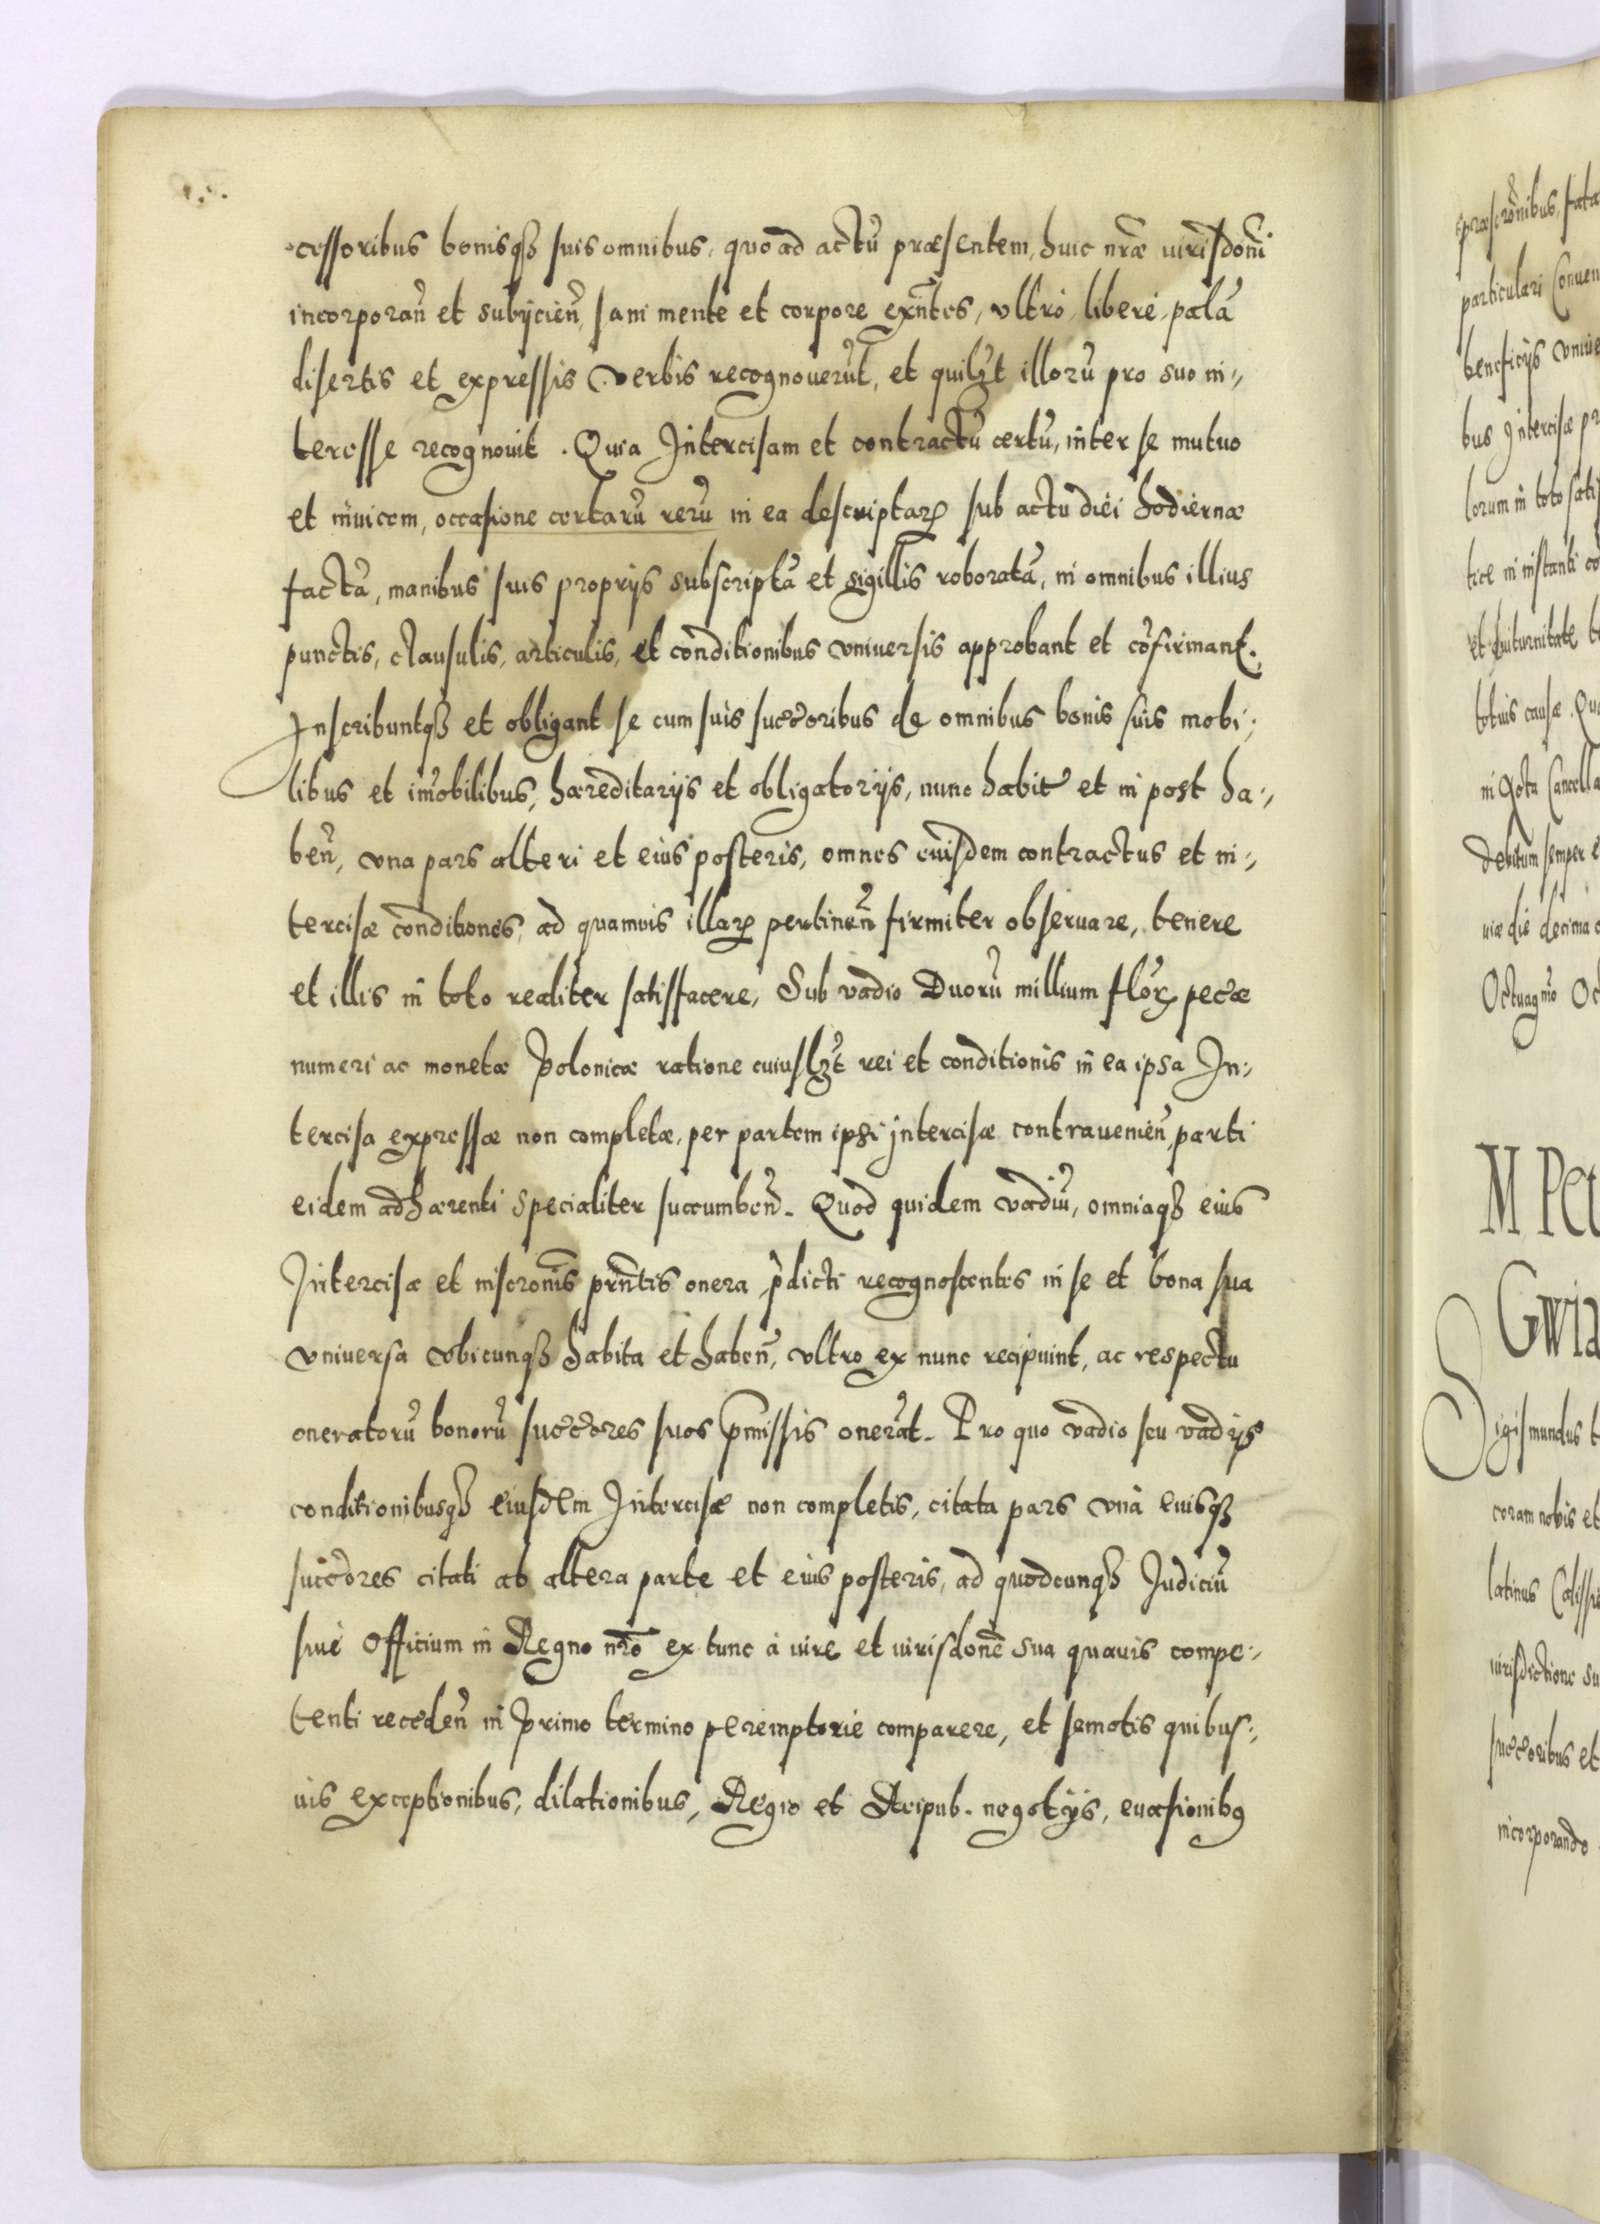 cessoribus bonisqȝ suis omnibus, quo ad actū præsentem, huic nr̄æ iurisdoni
incorporan̄ et subijcien̄, sani mente et corpore exn̄tes, vltro, libere, palā
disertis et expressis verbis recognoverūt, et quilȝt illorū pro suo in-,
teresse recognovit. Quia Intercisam et contractū certū, inter se mutuo
et invicem, occasione certarū rerū in ea descriptarꝝ sub actu diei hodiernæ
factā, manibus suis proprijs subscriptā et sigillis roboratā, in omnibus illius
punctis, clausulis, articulis, et conditionibus vniversis approbant et cōfirmant.
Inscribuntqȝ et obligant se cum suis succ̄oribus de omnibus bonis suis mobi-,
libus et im̄obilibus, hæreditarijs et obligatorijs, nunc habit̄ et in post ha-,
ben̄, vna pars alteri et eius posteris, omnes euisdem contractus et in-,
tercisæ conditiones, ad quamvis illarꝝ pertinen̄ firmiter observare, tenere
et illis in toto realiter satisfacere, Sub vadio Duorū millium florꝝ pec̄æ
numeri ac monetæ Polonicæ ratione cuiuslȝt rei et conditionis in ea ipsa In-,
tercisa expressæ non completæ, per partem ipsi intercisæ contravenien̄, parti
eidem adhærenti specialiter succumben̄. Quod quidem vadiū, omniaqȝ eius
Intercisæ et inscronis̄ prn̄tis onera p̄dicti recognoscentes in se et bona sua
vniversa vbicunqȝ habita et haben̄, vltro ex nunc recipiunt, ac respectu
oneratorū bonorū succ̄ores suos p̄missis onerāt. Pro quo vadio seu vadijs
conditionibusqȝ eiusdem Intercisæ non completis, citata pars vna euisqȝ
succ̄ores citati ab altera parte et eius posteris, ad quodcunqȝ Iudiciū
sive Officium in Regno nr̄o ex tunc à iure et iurisdonē sua quavis compe-,
tenti receden̄ in primo termino peremptorie comparere, et semotis quibus-,
vis exceptionibus, dilationibus, Regio et Reipub. negotijs, evasionibꝰ
particulari Conuen
beneficijs vniue
bus Intercisæ pr
lorum in toto satis
tice in instanti co
totius causæ. Quo
in Acta Cancella
debitum semper e
die decima
M Pet
Gwia
Sigismundus
coram nobis et
latinus Calissi
iurisdictione su
succ̄oribus et
incorporando